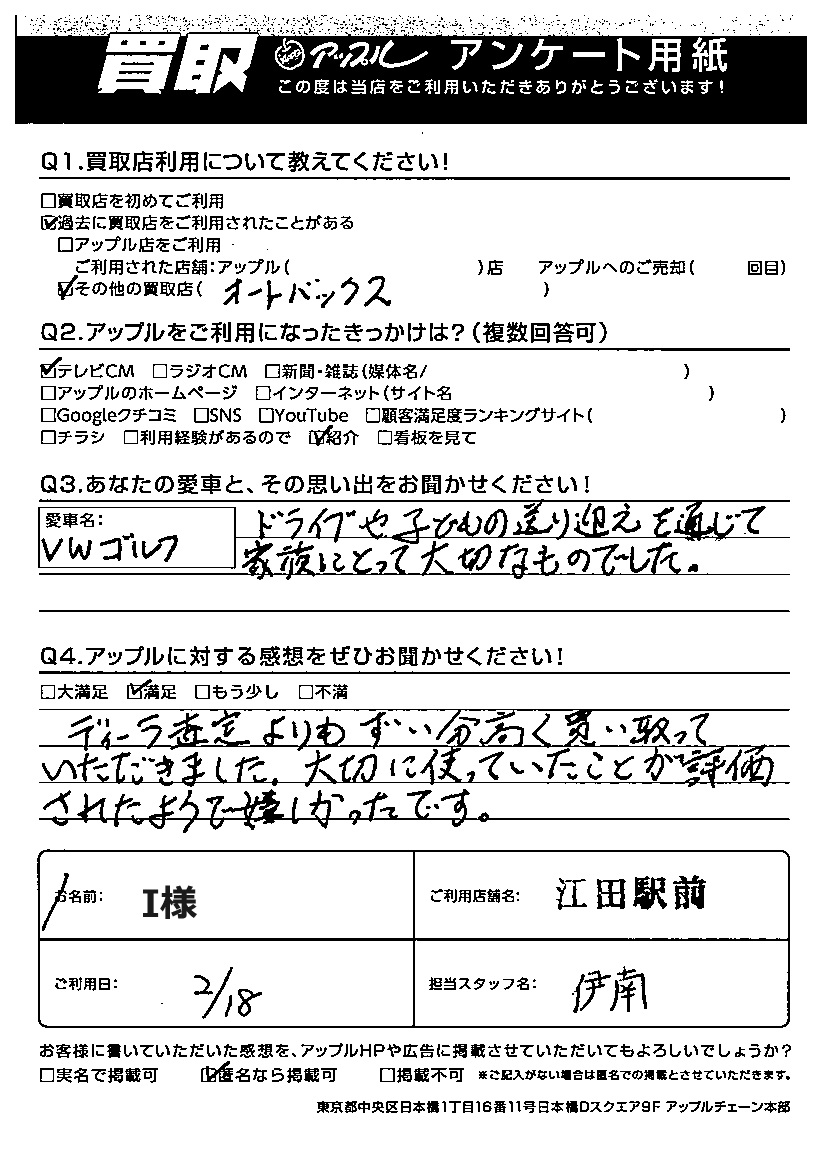 買取 アップル アンケート用紙
この度は当店をご利用いただきありがとうございます!
Q1.買取店利用について教えてください!
□買取店を初めてご利用
☑過去に買取店をご利用されたことがある
□アップル店をご利用
ご利用された店舗:アップル( )店 アップルへのご売却( 回目)
☑その他の買取店( オートバックス )
Q2.アップルをご利用になったきっかけは?(複数回答可)
☑テレビCM □ラジオCM □新聞・雑誌(媒体名/ )
□アップルのホームページ □インターネット(サイト名 )
□Googleクチコミ □SNS □YouTube □顧客満足度ランキングサイト( )
□チラシ □利用経験があるので ☑紹介 □看板を見て
Q3.あなたの愛車と、その思い出をお聞かせください!
愛車名:
VWゴルフ
ドライブや子ひもの送り迎えを通じて
家族にとって大切なものでした。
Q4.アップルに対する感想をぜひお聞かせください!
□大満足 ☑満足 □もう少し □不満
ディーラ査定よりもずい分高く買い取って
いただきました。大切に使っていたことが評価
されたようで嬉しかったです。
お名前: I様 ご利用店舗名: 江田駅前
ご利用日: 2/18 担当スタッフ名: 伊南
お客様に書いていただいた感想を、アップルHPや広告に掲載させていただいてもよろしいでしょうか?
□実名で掲載可 ☑匿名なら掲載可 □掲載不可 ※ご記入がない場合は匿名での掲載とさせていただきます。
東京都中央区日本橋1丁目16番11号日本橋Dスクエア9F アップルチェーン本部